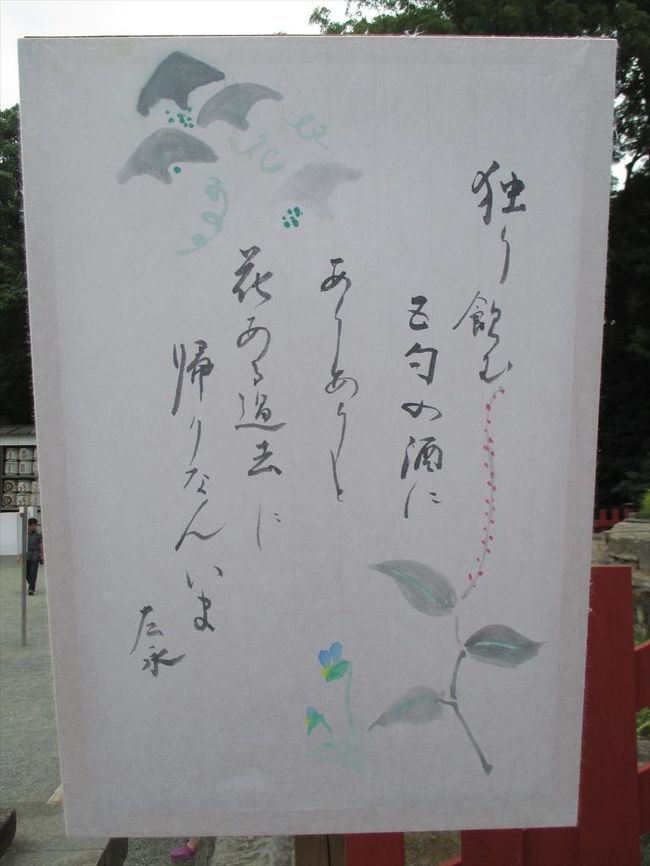 独り飲む
五勺の酒に
ありありと
花ある過去に
帰りなんいま
左永